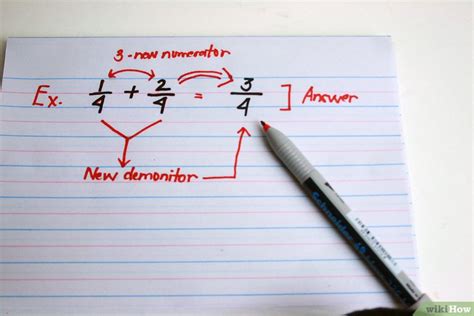 3-now numerator
Ex. 1/4 + 2/4 = 3/4 ] Answer
New demonitor
Schneider
wikiHow